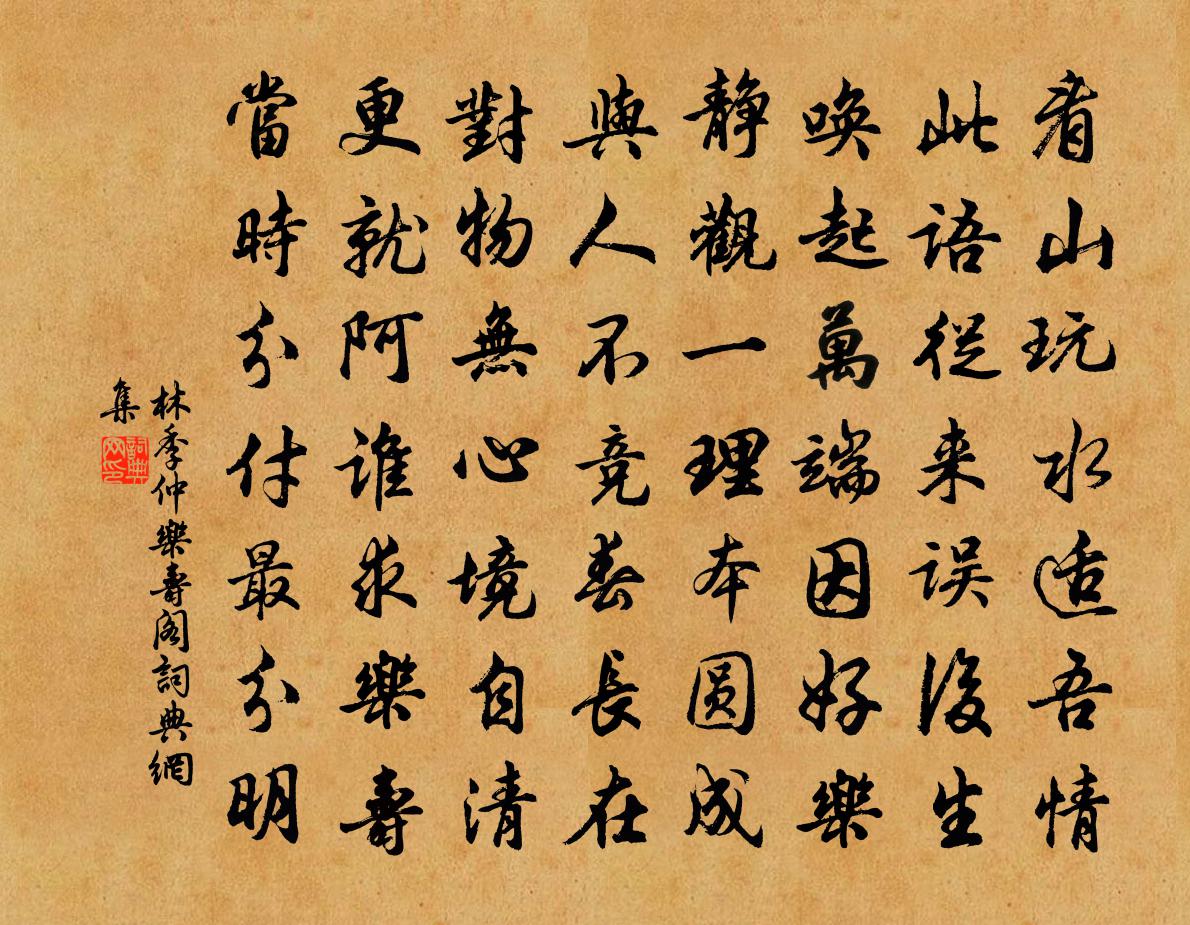 看山玩水适吾情
此語從来误後生
唤起萬端因好樂
静觀一理本圆成
與人不竞春長在
對物無心境自清
更就阿谁求樂壽
當時分付最分明
林季仲樂壽阁詞典網
集
詞典网印